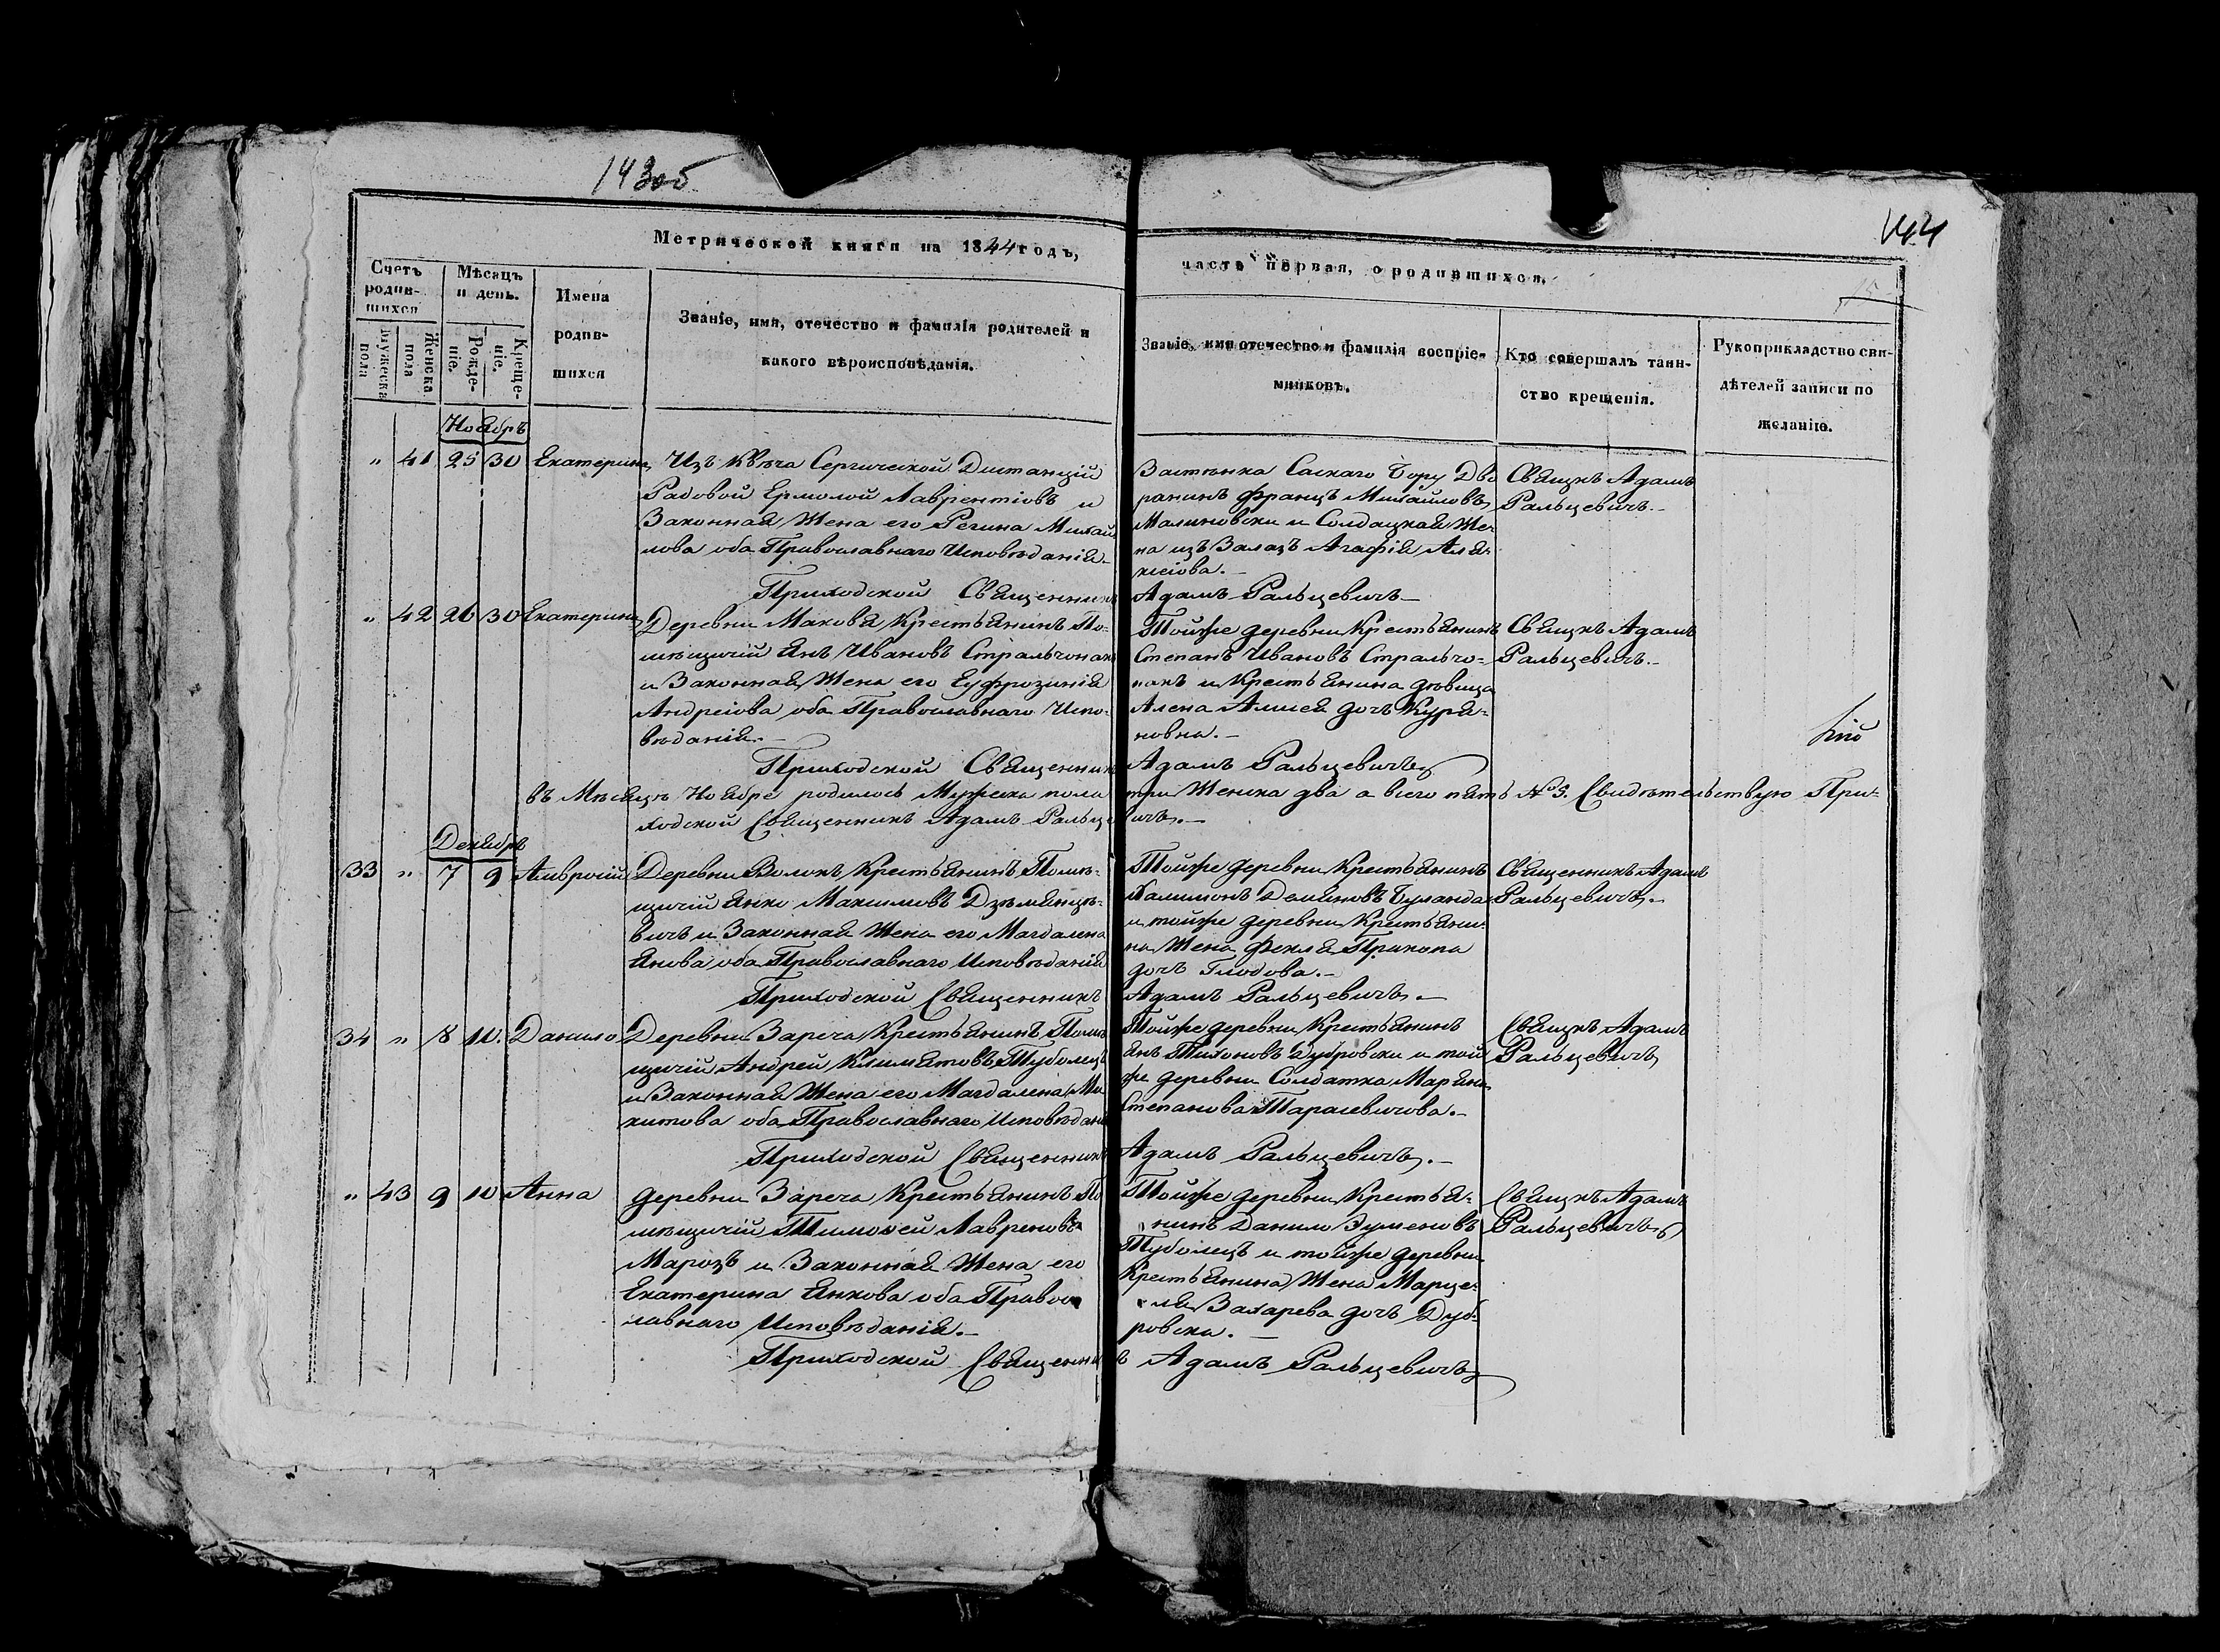 143об
144
Метрической книги на 1844 годъ,
часть первая, о родившихся.
Счетъ родив-
шихся
Мѣсяцъ
и день.
Имена
родив-
шихся
Званіе, имя, отечество и фамилія родителей и
какого вѣроисповѣданія.
Званіе, имя отечество и фамилія воспріе-
мниковъ.
Кто совершалъ таин-
ство крещенія.
Рукоприкладство сви-
дѣтелей записи по
желанію.
Мужеска
пола
Женска
пола
Рожде-
ніе.
Креще-
ніе.
Ноябръ
" 41 25 30 Екатерина
Изъ Сергической Дистанціи
Радовой Ермолой Лаврентіовъ и
Законная Жена его Регина Михай
лова оба Православнаго Исповѣданія.
Застѣнка Саскаго Бору Дво
ранинъ Францъ Михайловъ
Малиновски и Солдацкая Же
на изъ Залазъ Агафія Але
ксіова.
Свящнъ Адамъ
Ральцевичъ.
Приходской Священникъ
Адамъ Ральцевичъ
" 42 26 30 Екатерина
Деревни Махова Крестьянинъ По-
мѣщичій Янъ Ивановъ Стральчонакъ
и Законная Жена его Еуфрозинія
Андреіова оба Православнаго Испо-
вѣданія.
Тойже деревни Крестьянинъ
Степанъ Ивановъ Стральчо-
накъ и Крестьянина дѣвица
Алена дочъ Куря-
новна.
Свящнъ Адамъ
Ральцевичъ.
Приходской Священникъ
Адамъ Ральцевичъ
въ Мѣсяцѣ Ноябре родилось Мужеска пола три Женска два а всего пять № 5. Свидѣтельствую При-
ходской Священникъ Адамъ Ральцевичъ.
Декабръ
33 " 7 9 Амвросій
Деревни Волокъ Крестьянинъ Помѣ-
щичій Янко Максимовъ Дземянце-
вичъ и Законная Жена его Магдалена
Янова оба Православнаго Исповѣданія
Тойже деревни Крестьянинъ
Халимонъ Демяновъ Буланда
и тойже деревни Крестьяни-
на Жена Фекла Пракопа
дочъ Глодова.
Священникъ Адамъ
Ральцевичъ.
Приходской Священникъ
Адамъ Ральцевичъ.
34 " 8 10. Данило
Деревни Зареча Крестьянинъ Помѣ
щичій Андрей Климятовъ Туболецъ
и Законная Жена его Магдалена Ми
китова оба Православнаго Исповѣдан
Тойже деревни Крестьянинъ
Янъ Тихоновъ Дубровски и той
же деревни Солдатка Маряна
Степанова Тарасевичова.
Свящнъ Адамъ
Ральцевичъ
Приходской Священникъ
Адамъ Ральцевичъ.
" 43 9 10 Анна
деревни Зареча Крестьянинъ По
мѣщичій Тимоѳей Лавреновъ
Марозъ и Законная Жена его
Екатерина Янкова оба Правос
лавнаго Исповѣданія.
Тойже деревни Крестья-
нинъ Данило Зуменовъ
Туболецъ и тойже деревни
Крестьянина Жена Марце-
ля Захарева дочъ Дуб-
ровска.
Свящнъ Адамъ
Ральцевичъ
Приходской Священникъ
Адамъ Ральцевичъ